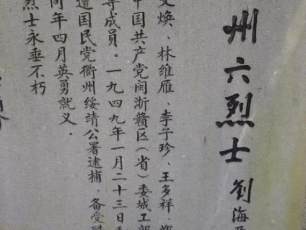 州六烈士
刘海
焕、林维雁、李子珍、王多祥、郑
中国共产党闽浙赣区（省）委城工部
等成员。一九四九年一月二十三日
遭国民党衢州绥靖公署逮捕，备受
同年四月英勇就义。
烈士永垂不朽